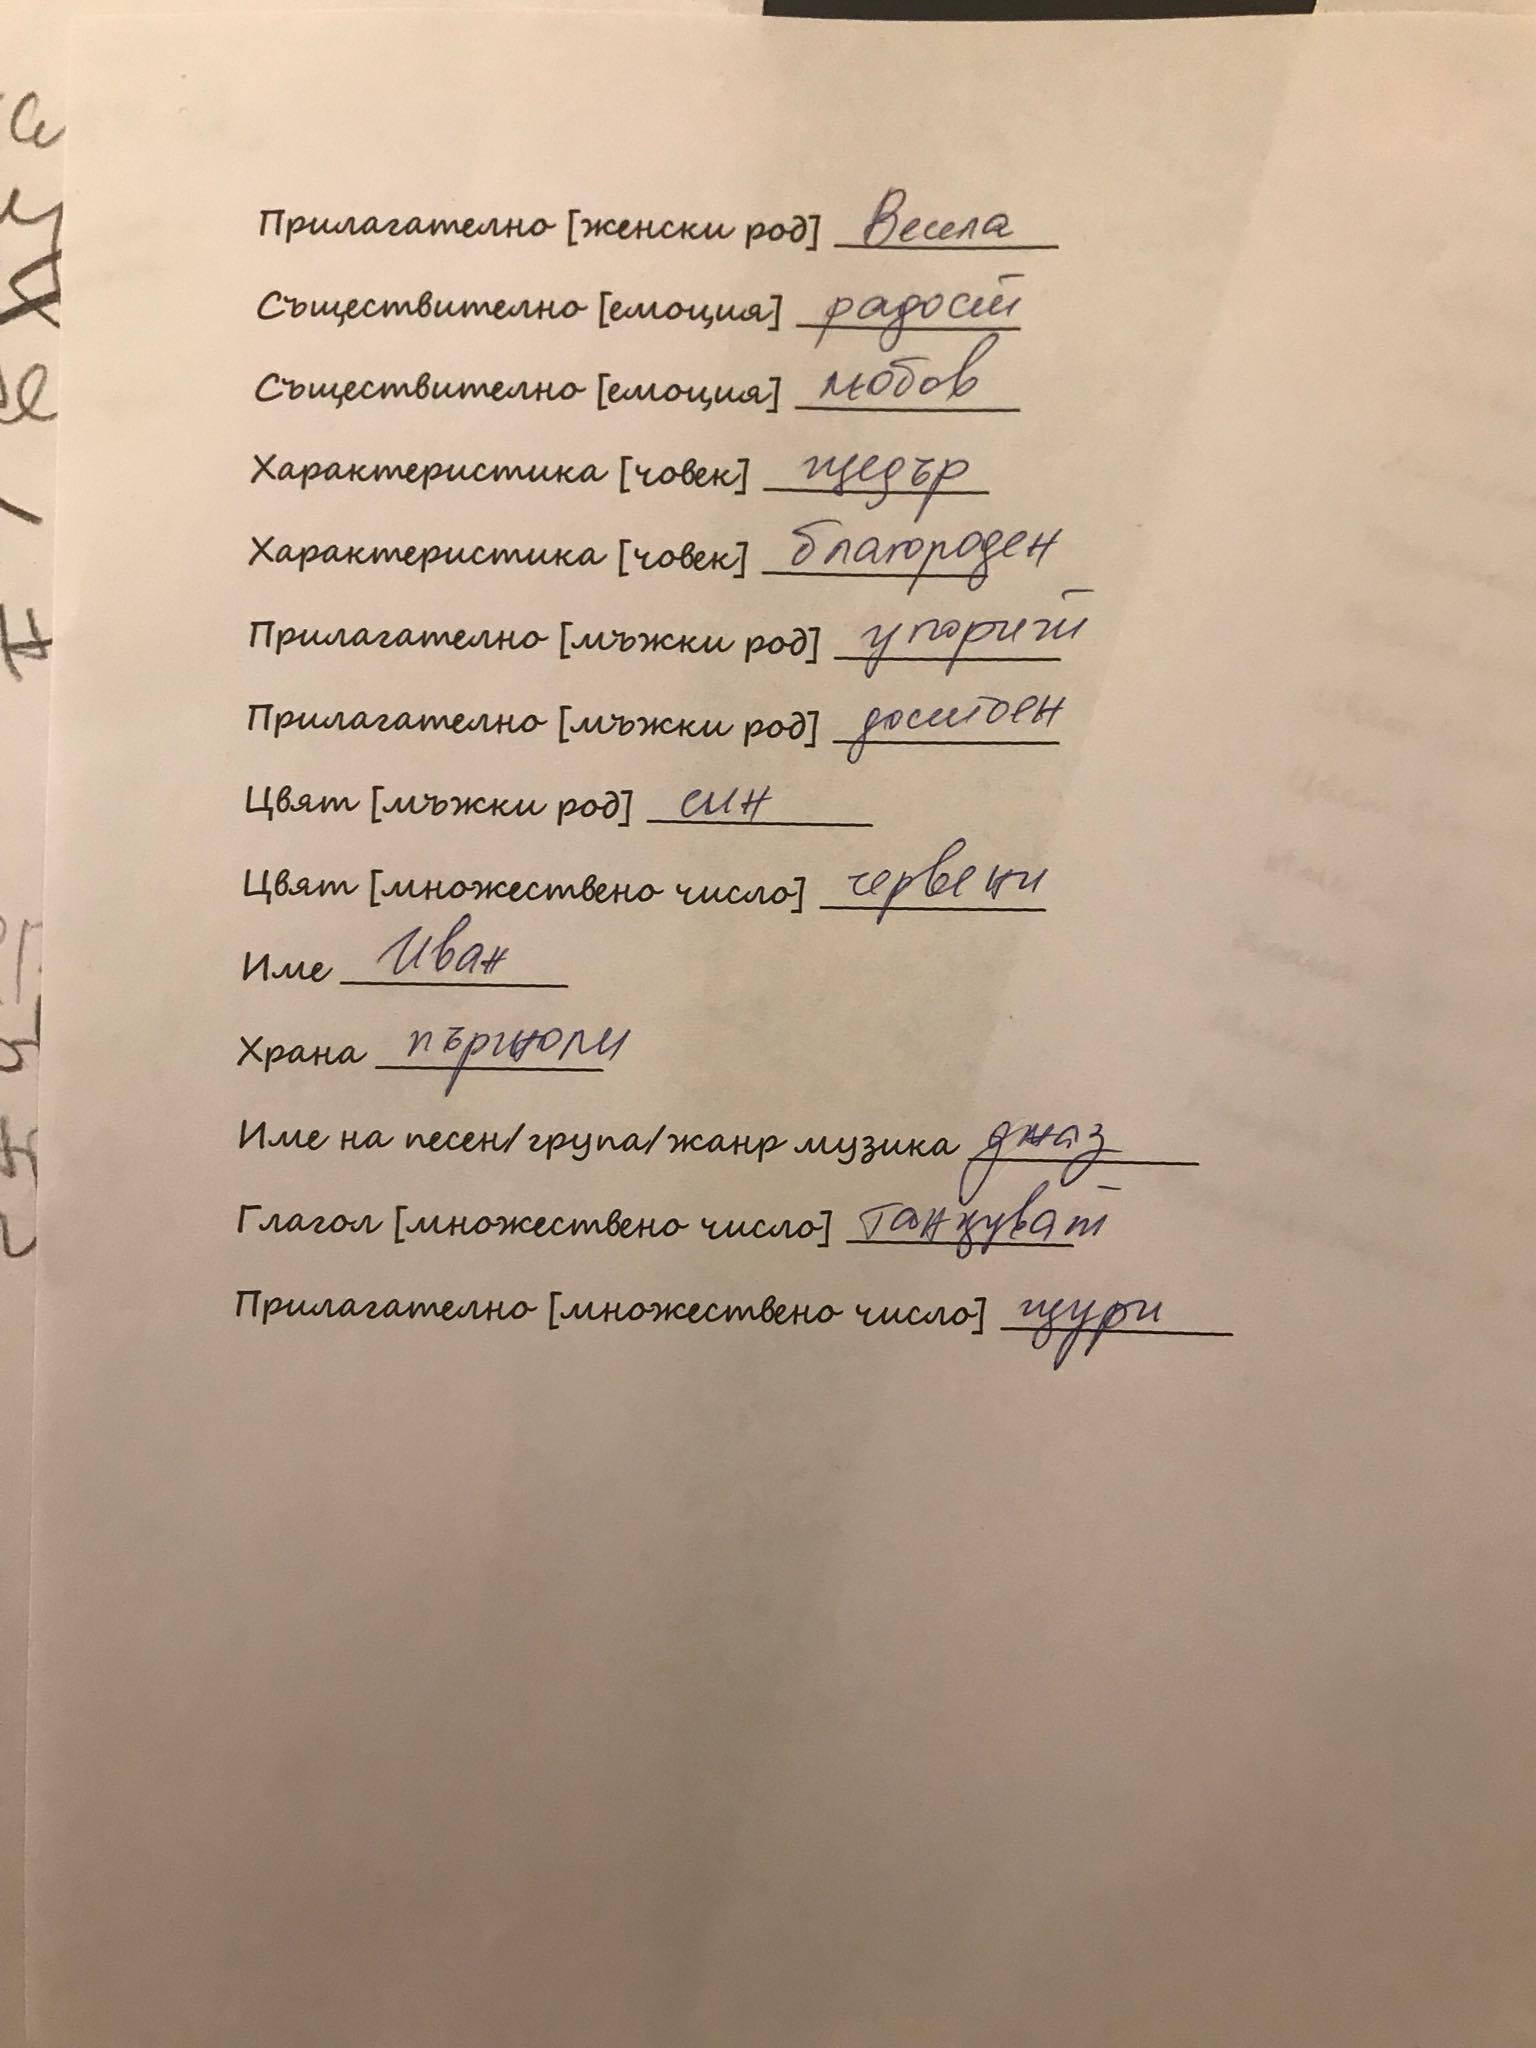 Прилагателно [женски род] Весела
Съществително [емоция] радост
Съществително [емоция] любов
Характеристика [човек] щедър
Характеристика [човек] благороден
Прилагателно [мъжки род] упорит
Прилагателно [мъжки род] достоен
Цвят [мъжки род] син
Цвят [множествено число] червени
Име Иван
Храна пържоли
Име на песен/група/жанр музика джаз
Глагол [множествено число] танцуват
Прилагателно [множествено число] щури